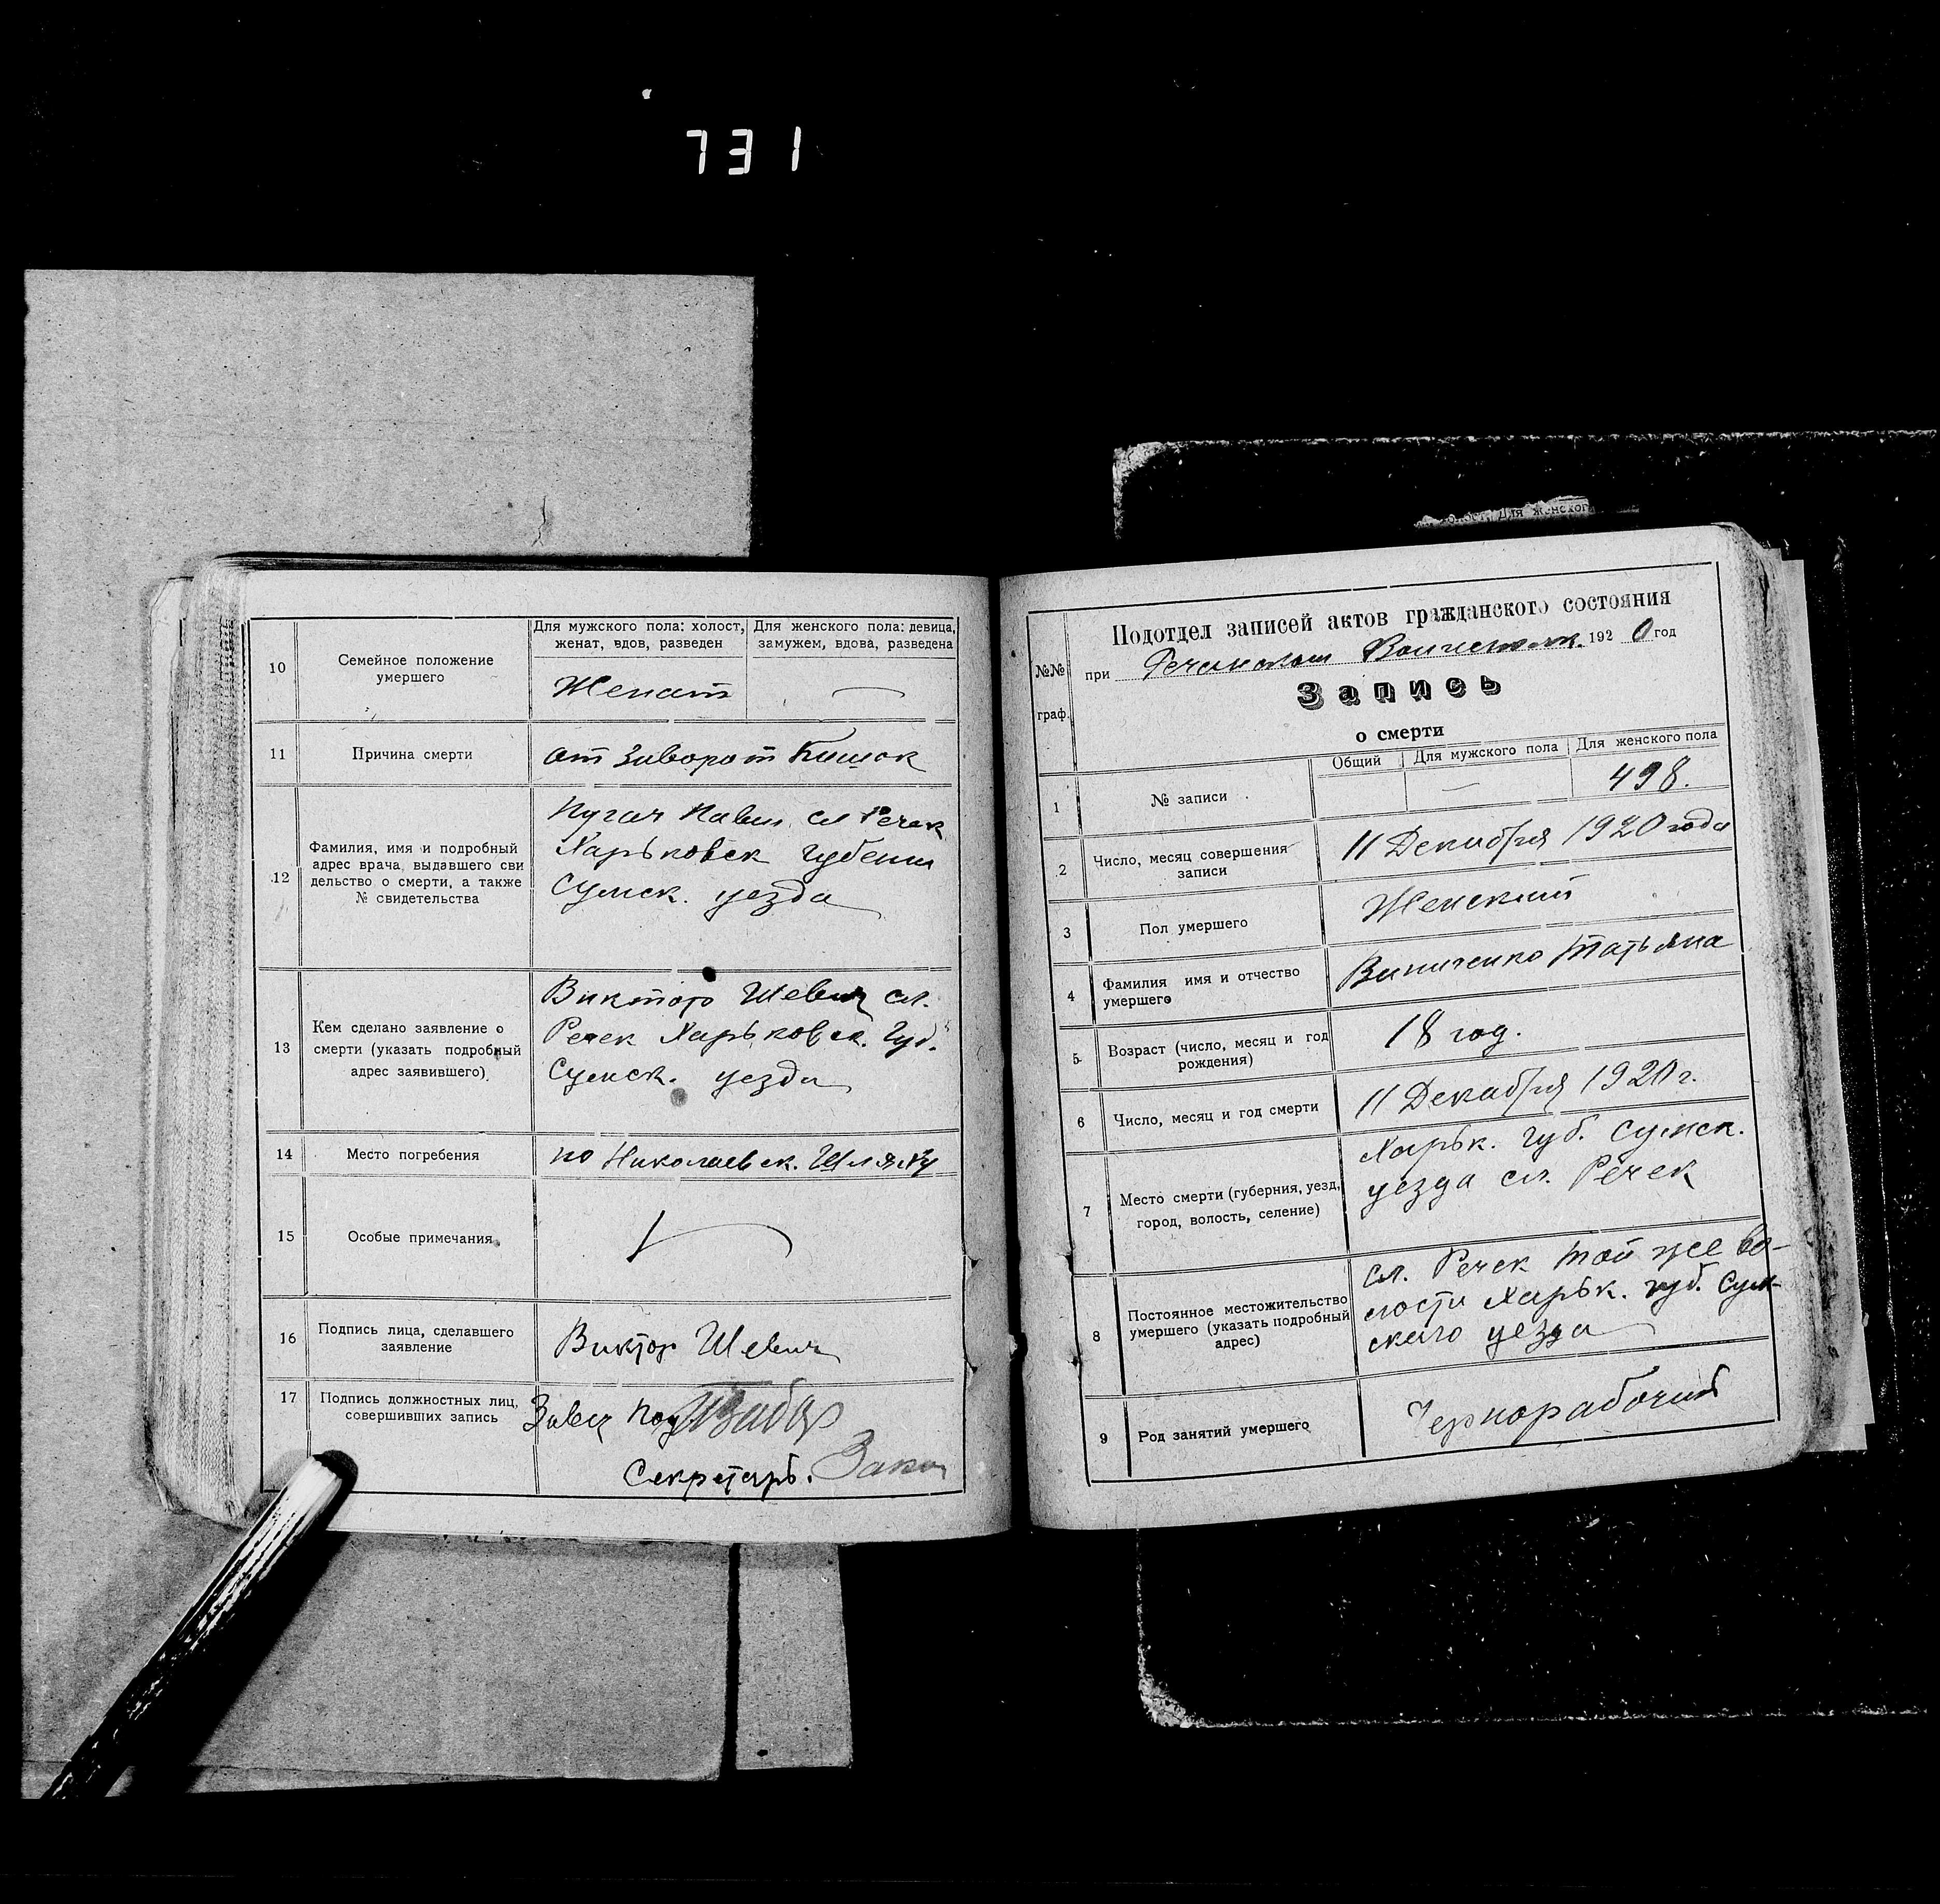 731
10
Семейное положение
умершего
Для мужского пола: холост,
женат, вдов, разведен
Для женского пола: девица,
замужем, вдова, разведена
Женат
11
Причина смерти
от Заворот Кишок
12
Фамилия, имя и подробный
адрес врача, выдавшего сви
дельство о смерти, а также
№ свидетельства
Пугач Павел сл Речек
Харьковск губении
Сумск. уезда
13
Кем сделано заявление о
смерти (указать подробный
адрес заявившего)
Виктор Шевич сл.
Речек Харьковск. Губ.
Сумск. уезда
14
Место погребения
по Николаевск. Шляху
15
Особые примечания
16
Подпись лица, сделавшего
заявление
Виктор Шевич
17
Подпись должностных лиц,
совершивших запись
Завед Под
Секретарь.
для женского
№№
граф.
Подотдел записей актов гражданского состояния
при Речанском 1920 год
Запись
о смерти
Общий
Для мужского пола
Для женского пола
1
№ записи
498.
2
Число, месяц совершения
записи
11 Декабря 1920 года
3
Пол умершего
Женский
4
Фамилия имя и отчество
умершего
Винниченко Татьяна
5
Возраст (число, месяц и год
рождения)
18 год.
6
Число, месяц и год смерти
11 Декабря 1920 г.
7
Место смерти (губерния, уезд,
город, волость, селение)
Харьк. губ. Сумск.
уезда сл. Речек
8
Постоянное местожительство
умершего (указать подробный
адрес)
сл. Речек той же во-
лости Харьк. губ. Сум-
ского уезда
9
Род занятий умершего
Чернорабочий